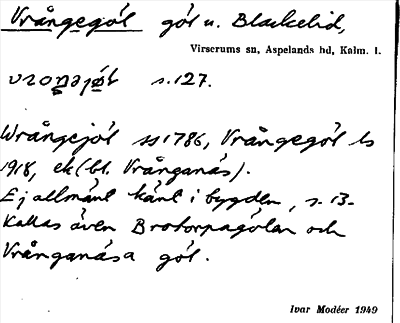 Vrångegöl göl n. Blackelid,
Virserums sn, Aspelands hd, Kalm. l.
s. 127.
Wrångejöl ss 1786, Vrångegöl ls
1918, ek (bl. Vrånganäs).
Ej allmänt känt i bygden, s. 13.
Kallas även Brotorpagölan och
Vrånganäsa göl.
Ivar Modéer 1949